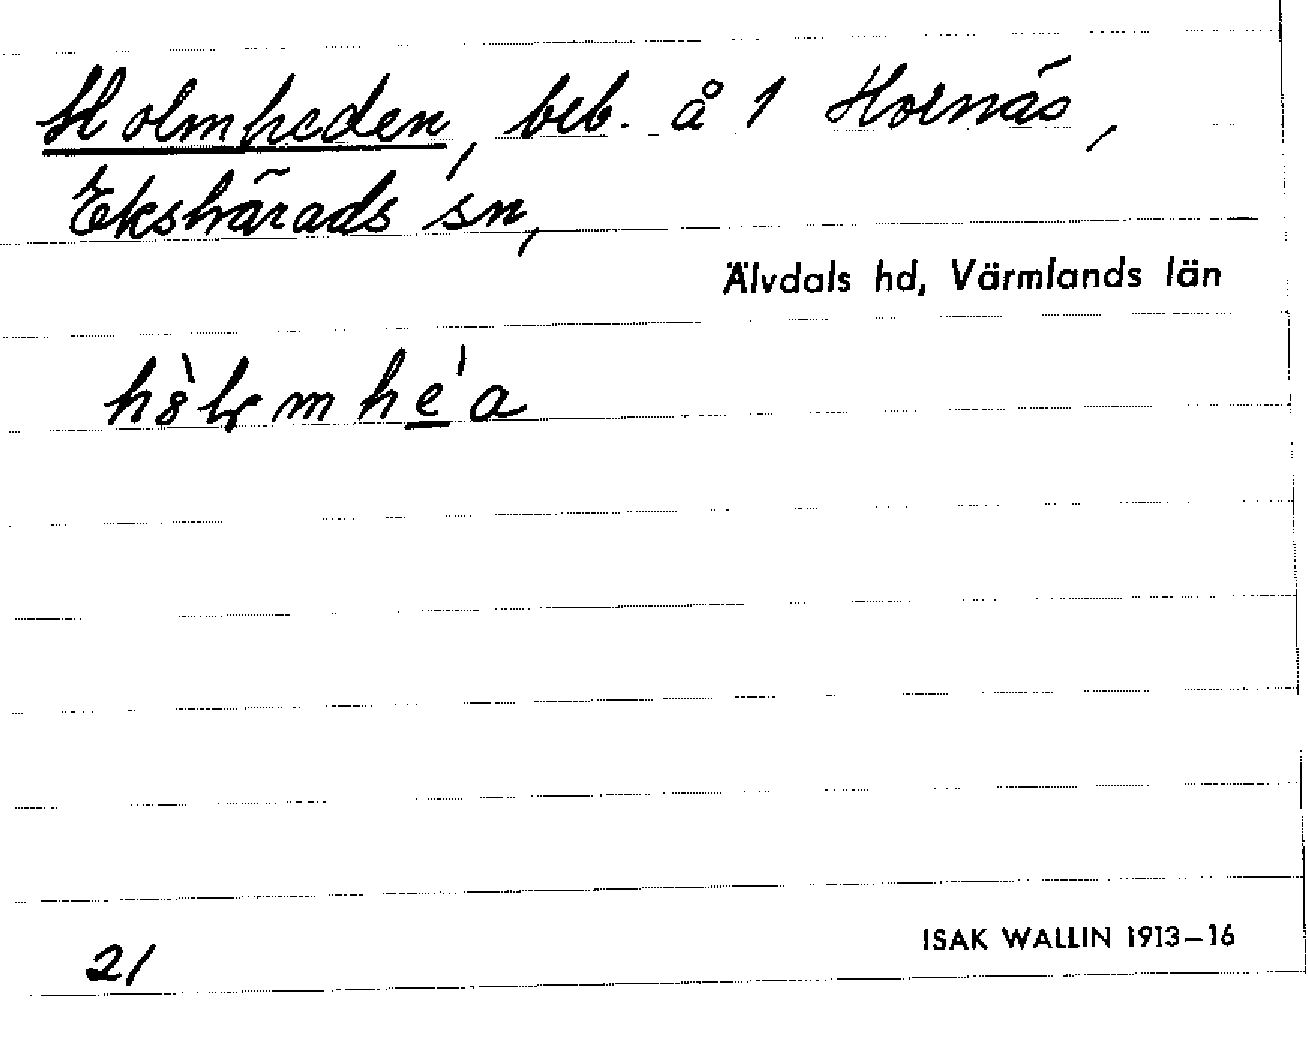 Holmheden, beb. å 1 Hornäs,
Ekshärads sn,
Älvdals hd, Värmlands län
21
ISAK WALLIN 1913–16